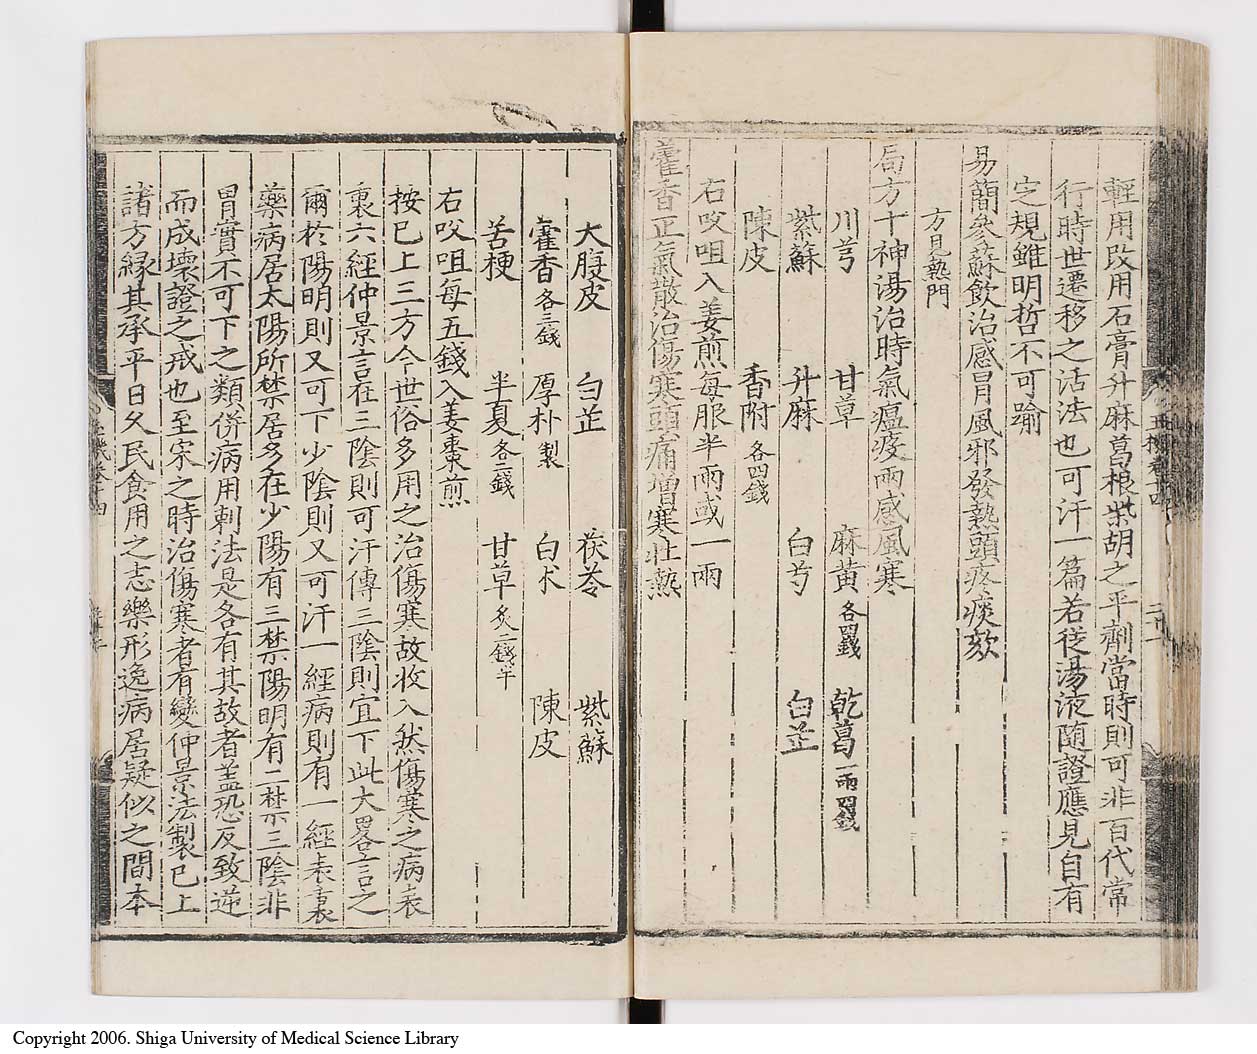 輕用改用石膏升麻葛根柴胡之平劑當時則可非百代常
行時世遷移之活法也可汗一篇若從湯液隨證應見自有
定規雖明哲不可踰
易簡參蘇飲治感冒風邪發熱頭疼痰欬
方見熱門
局方十神湯治時氣瘟疫兩感風寒
川芎 甘草 麻黄各四錢 乾葛一兩四錢
紫蘇 升麻 白芍 白芷
陳皮 香附各四錢
右㕮咀入姜煎每服半兩或一兩
藿香正氣散治傷寒頭痛增寒壯熱
大腹皮 白芷 茯苓 紫蘇
藿香各三錢 厚朴製 白朮 陳皮
苦梗 半夏各二錢 甘草炙二錢半
右㕮咀每五錢入姜棗煎
按已上三方今世俗多用之治傷寒故收入然傷寒之病表
裏六經仲景言在三陰則可汗傳三陰則宜下此大畧言之
爾於陽明則又可下少陰則又可汗一經病則有一經表裏
藥病居太陽所禁居多在少陽有三禁陽明有二禁三陰非
胃實不可下之類併病用刺法是各有其故者盖恐反致逆
而成壞證之戒也至宋之時治傷寒者有變仲景法製已上
諸方緣其承平日久民食用之志樂形逸病居疑似之間本
Copyright 2006. Shiga University of Medical Science Library